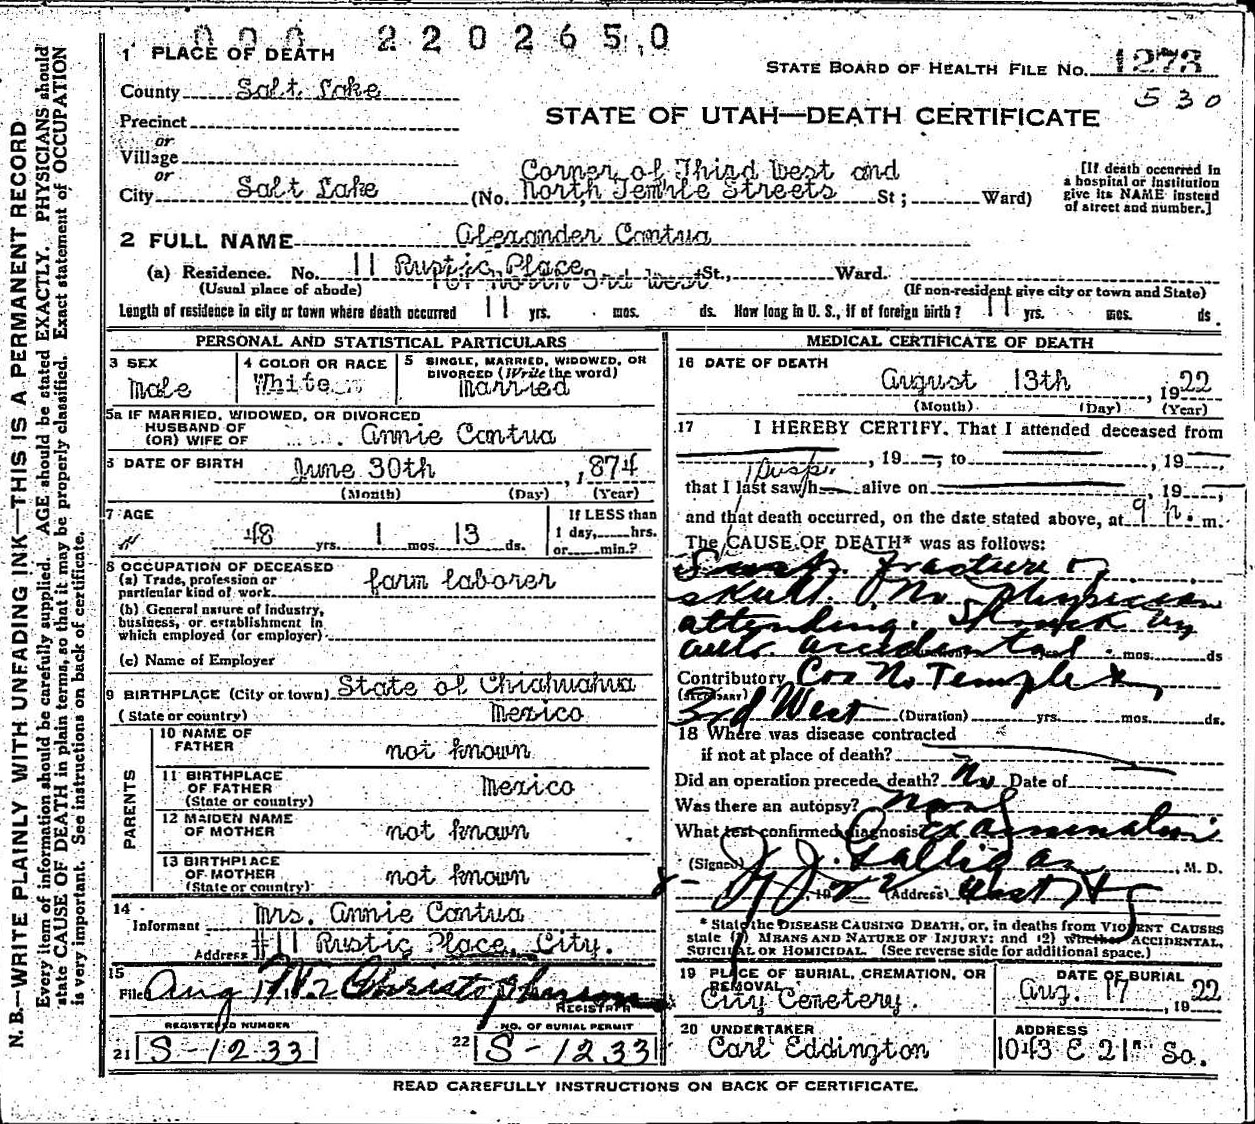 000 2202650
1 PLACE OF DEATH
STATE BOARD OF HEALTH FILE NO. 1273
530
County Salt Lake
STATE OF UTAH—DEATH CERTIFICATE
Precinct
or
Village
or
City Salt Lake (No. Corner of Third West and North Temple Streets St; Ward)
[If death occurred in a hospital or institution give its NAME instead of street and number.]
2 FULL NAME Alexander Contua
(a) Residence. No. 11 Rustic Place St., Ward.
North 3rd West
(Usual place of abode) (If non-resident give city or town and State)
Length of residence in city or town where death occurred 11 yrs. mos. ds. How long in U. S., if of foreign birth? 11 yrs. mos. ds.
PERSONAL AND STATISTICAL PARTICULARS
3 SEX Male
4 COLOR OR RACE White
5 SINGLE, MARRIED, WIDOWED, OR DIVORCED (Write the word) Married
5a IF MARRIED, WIDOWED, OR DIVORCED
HUSBAND OF
(OR) WIFE OF Annie Contua
6 DATE OF BIRTH June 30th, 1874
(Month) (Day) (Year)
7 AGE 48 yrs. 1 mos. 13 ds.
If LESS than 1 day, hrs. or min.?
8 OCCUPATION OF DECEASED
(a) Trade, profession or particular kind of work farm laborer
(b) General nature of Industry, business, or establishment in which employed (or employer)
(c) Name of Employer
9 BIRTHPLACE (City or town) State of Chiahuahua
(State or country) Mexico
PARENTS
10 NAME OF FATHER not known
11 BIRTHPLACE OF FATHER (State or country) Mexico
12 MAIDEN NAME OF MOTHER not known
13 BIRTHPLACE OF MOTHER (State or country) not known
14 Informant Mrs. Annie Contua
Address #11 Rustic Place, City.
15 Filed Aug 17 1922 Christopherson
REGISTRAR
REGISTERED NUMBER
21 S-1233
NO. OF BURIAL PERMIT
22 S-1233
MEDICAL CERTIFICATE OF DEATH
16 DATE OF DEATH
August 13th, 1922
(Month) (Day) (Year)
17 I HEREBY CERTIFY, That I attended deceased from
, 19 —, to , 19 —
that I last saw h— alive on , 19
and that death occurred, on the date stated above, at 9 P. m.
The CAUSE OF DEATH* was as follows:
fracture of
skull. No physician
attending. Struck by
auto. accidental mos. ds
Contributory Cor N. Temple &
(SECONDARY)
3rd West (Duration) yrs. mos. ds.
18 Where was disease contracted
if not at place of death?
Did an operation precede death? No Date of
Was there an autopsy? None
What test confirmed diagnosis Examination
(Signed) J. J. Galligan, M. D.
, 19 22 (Address)
* State the DISEASE CAUSING DEATH, or, in deaths from VIOLENT CAUSES state (1) MEANS AND NATURE OF INJURY; and (2) whether ACCIDENTAL, SUICIDAL OR HOMICIDAL. (See reverse side for additional space.)
19 PLACE OF BURIAL, CREMATION, OR REMOVAL
City Cemetery.
DATE OF BURIAL
Aug. 17, 1922
20 UNDERTAKER
Carl Eddington
ADDRESS
1043 E 21" So.
READ CAREFULLY INSTRUCTIONS ON BACK OF CERTIFICATE.
N. B.—WRITE PLAINLY WITH UNFADING INK—THIS IS A PERMANENT RECORD
Every item of information should be carefully supplied. AGE should be stated EXACTLY. PHYSICIANS should
state CAUSE OF DEATH in plain terms, so that it may be properly classified. Exact statement of OCCUPATION
is very important. See instructions on back of certificate.